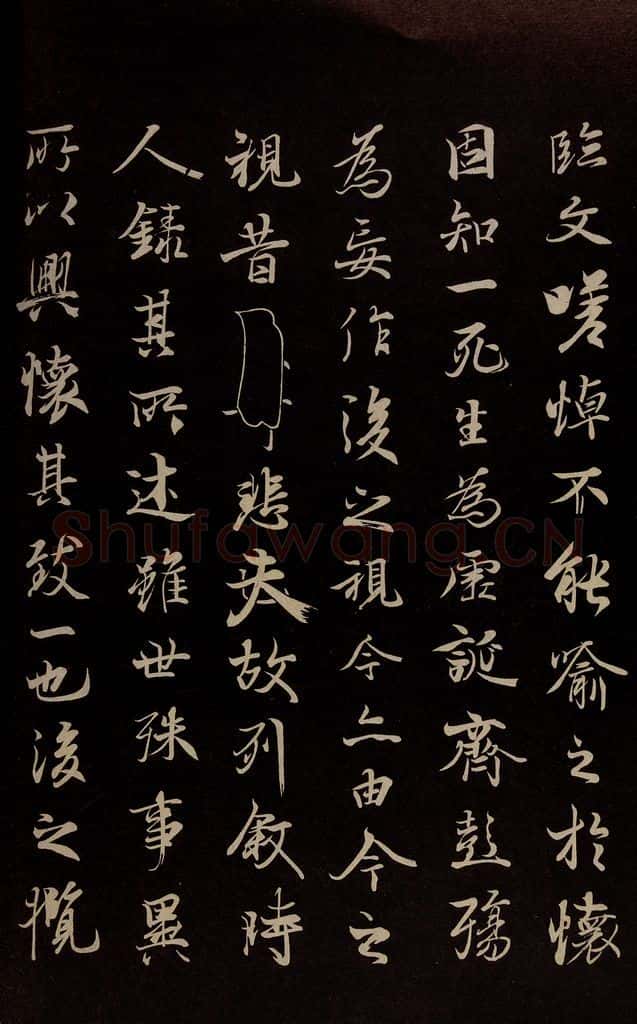 臨文嗟悼不能喻之於懷
固知一死生為虛誕齊彭殤
為妄作後之視今亦由今之
視昔悲夫故列敘時
人錄其所述雖世殊事異
所以興懷其致一也後之攬
Shufawang.CN